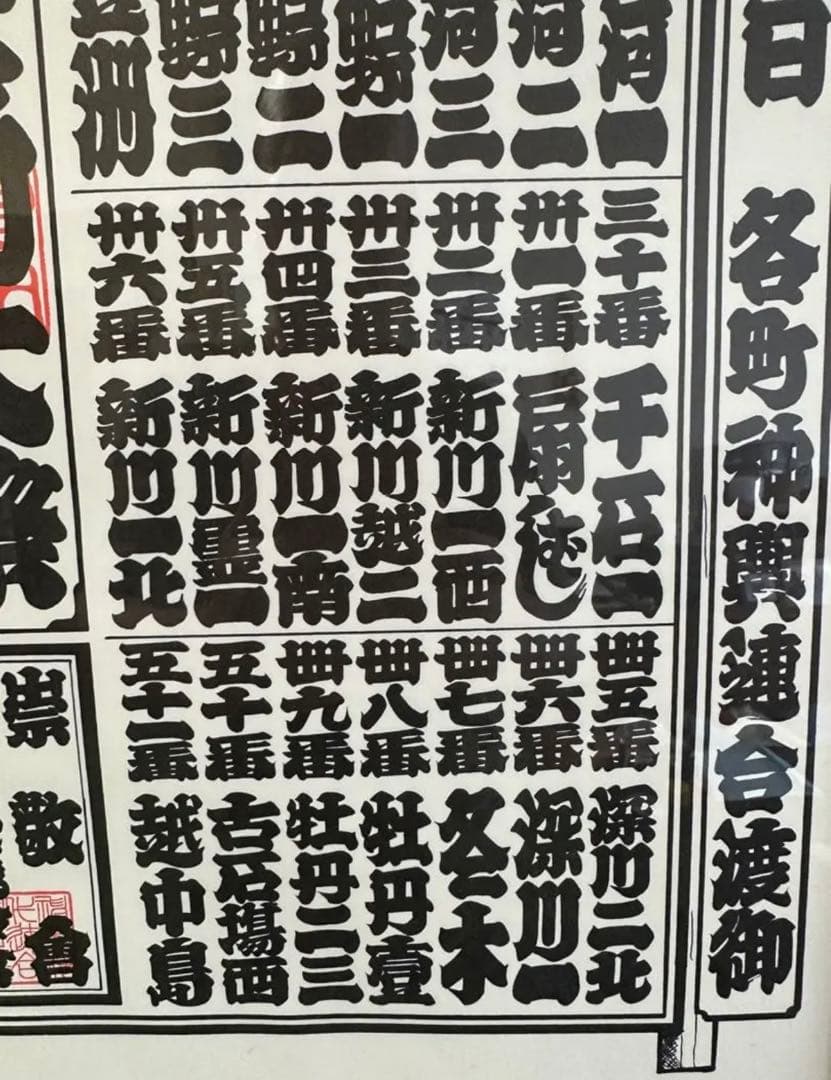 日 各町神輿連合渡御
河一
河二
河三
野一
野二
野三
洲
三十番 千石一
卅一番 扇ばし
卅二番 新川一西
卅三番 新川越二
卅四番 新川一南
卅五番 新川霊一
卅六番 新川一北
卌五番 深川二北
卌六番 深川一
卌七番 冬木
卌八番 牡丹壹
卌九番 牡丹二三
五十番 古石場西
五十一番 越中島
大祭
崇敬會